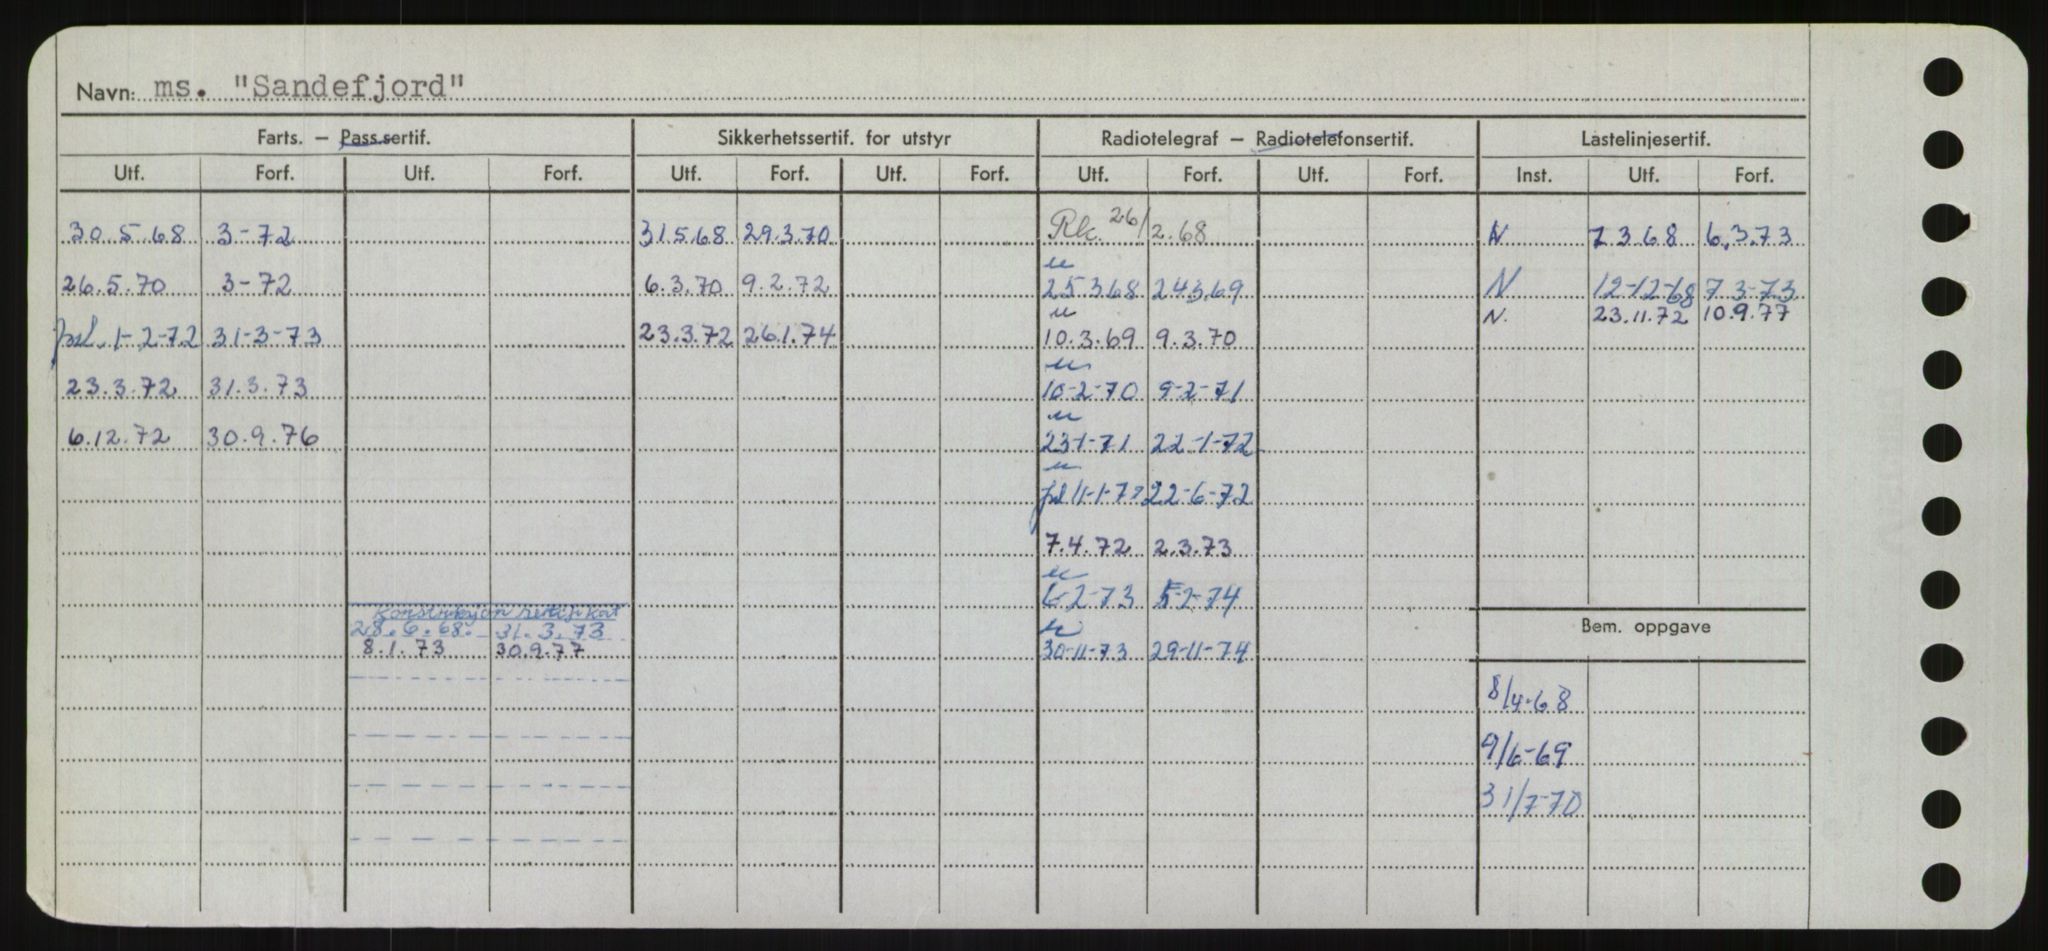 Navn: ms. "Sandefjord"
Farts. — Pass.sertif. Sikkerhetssertif. for utstyr Radiotelegraf — Radiotelefonsertif. Lastelinjesertif.
Utf. Forf. Utf. Forf. Utf. Forf. Utf. Forf. Utf. Forf. Utf. Forf. Inst. Utf. Forf.
30.5.68 3-72 31.5.68 29.3.70 Rk. 26/2.68 N 7.3.68 6.3.73
26.5.70 3-72 6.3.70 9.2.72 25.3.68 24.3.69 N 12-12-68 7.3-73
N. 23.11.72 10.9.77
1-2-72 31-3-73 23.3.72 26.1.74 10.3.69 9.3.70
23.3.72 31.3.73 10-2-70 9-2-71
6.12.72 30.9.76 23-1-71 22-1-72
11-1-72 22-6-72
7.4.72 2.3.73
6-2-73 5-2-74
Konstruksjon sertifikat
28.6.68. 31.3.73 Bem. oppgave
8.1.73 30.9.77 30-11-73 29-11-74
8/4-68
9/6-69
31/7-70